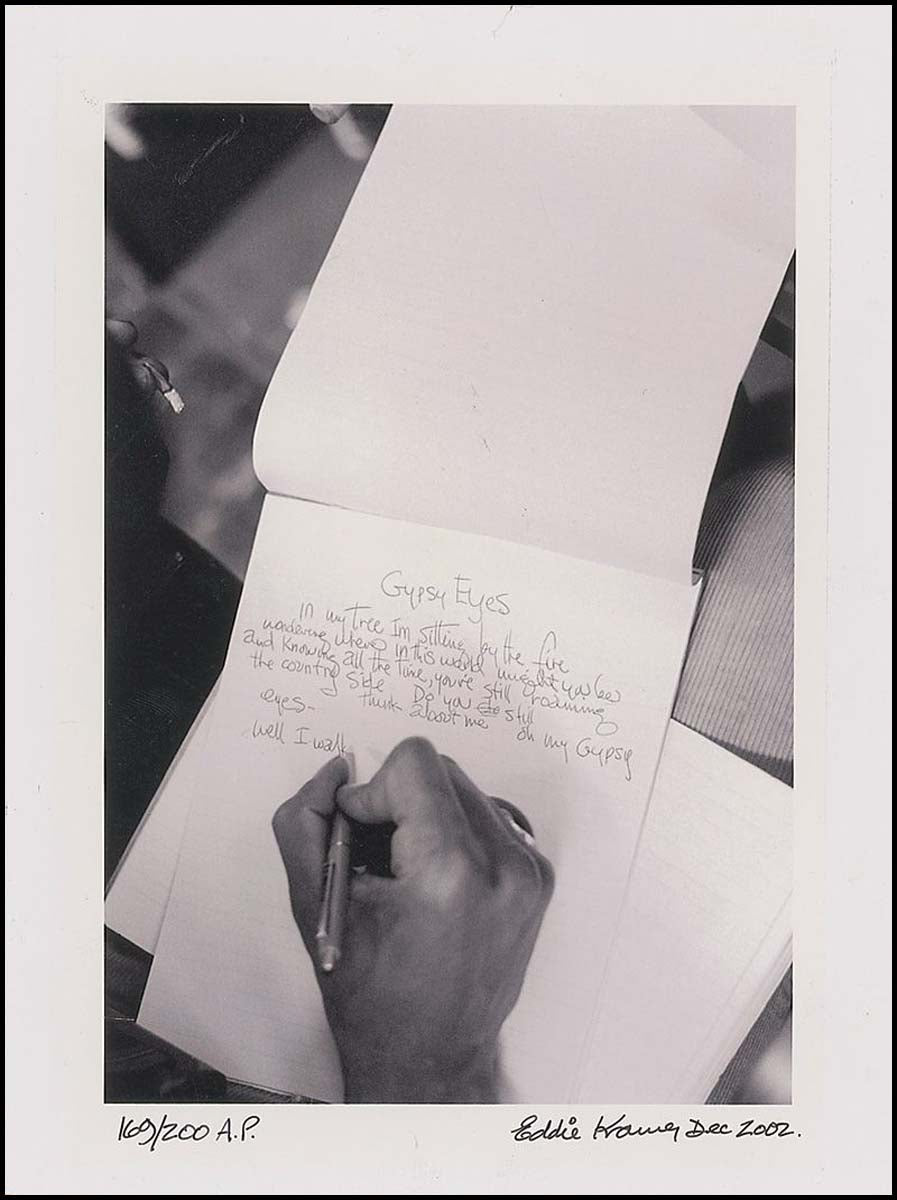 Gypsy Eyes
In my Tree Im sitting by the fire
wondering where in this world might you bee
and knowing all the time, you're still roaming
the country side Do you still
think about me oh my Gypsy
eyes-
well I walk
169/200 A.P.
Eddie Kramer Dec 2002.